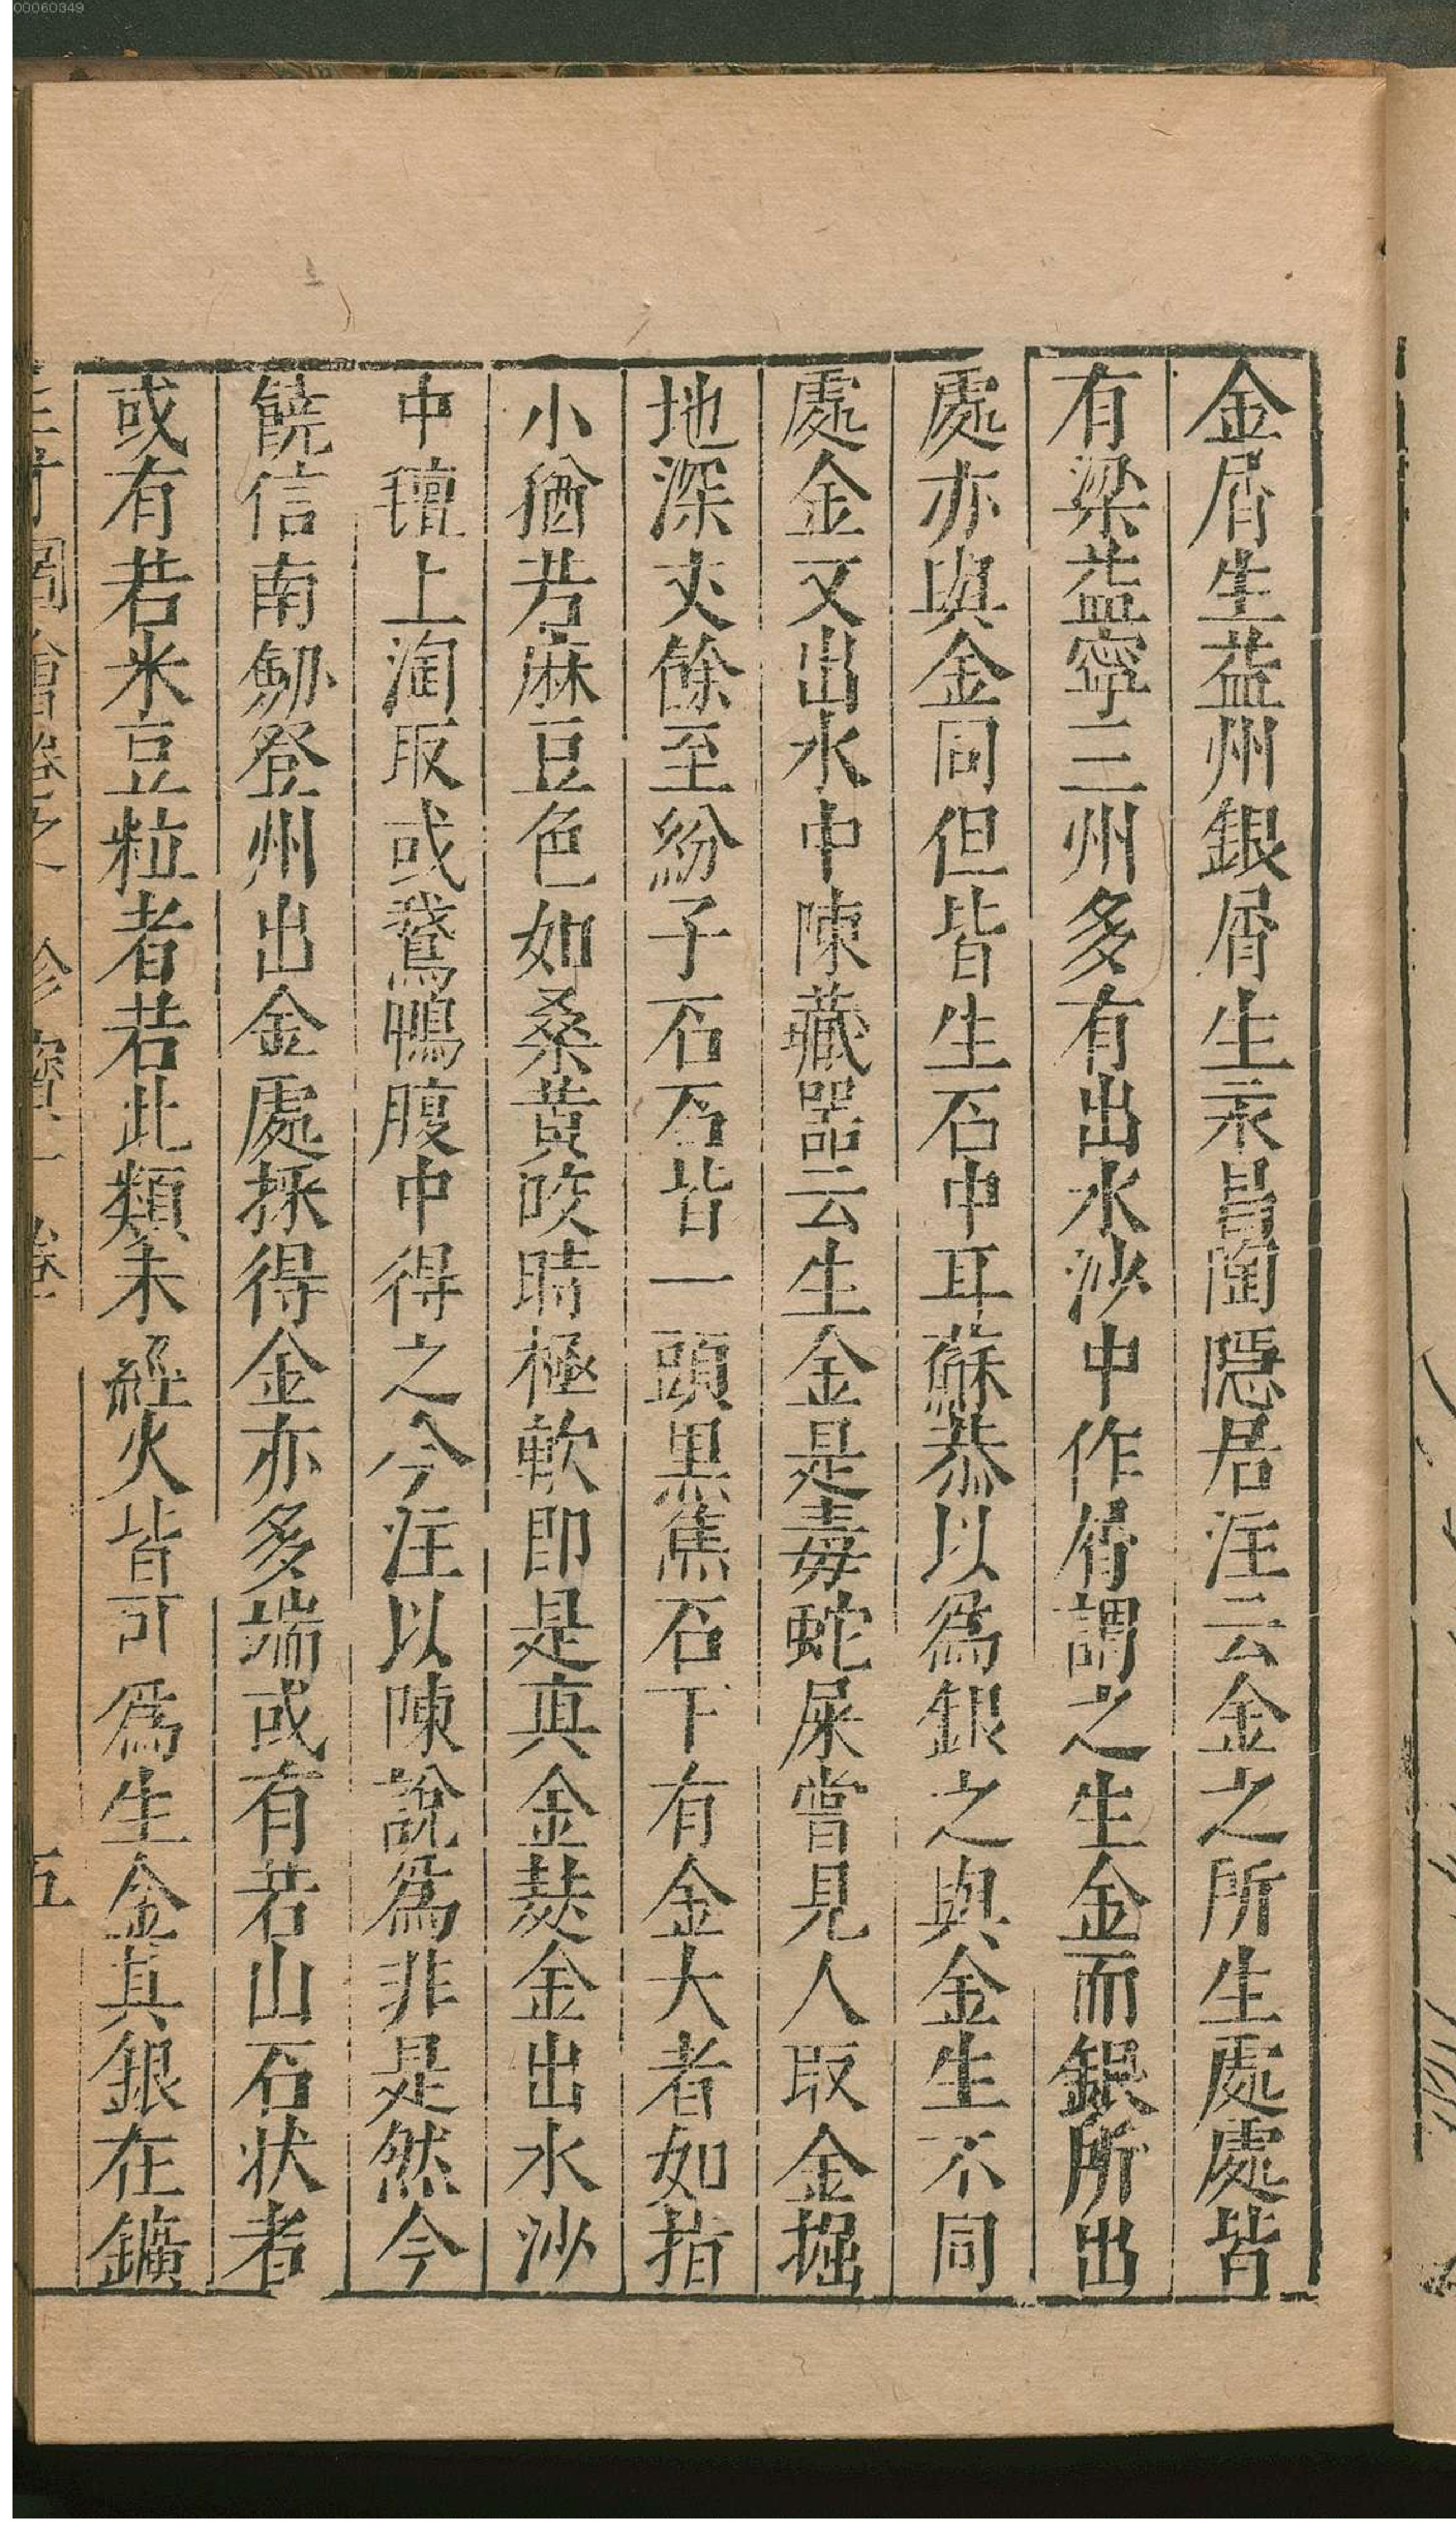 00060349
金屑生益州銀屑生永昌陶隱居注云金之所生處處皆
有梁益寧三州多有出水沙中作屑謂之生金而銀所出
處亦與金同但皆生石中耳蘇恭以爲銀之與金生不同
處金又出水中陳藏器云生金是毒蛇屎嘗見人取金掘
地深丈餘至紛子石石皆一頭黒焦石下有金大者如指
小猶若麻豆色如桑黄咬時極軟即是真金麸金出水沙
中氊上淘取或鵞鴨腹中得之今注以陳說爲非是然今
饒信南劒登州出金處採得金亦多端或有若山石状者
或有若米豆粒者若此類未經火皆可爲生金其銀在鑛
圖會卷之 珍寶一卷 五